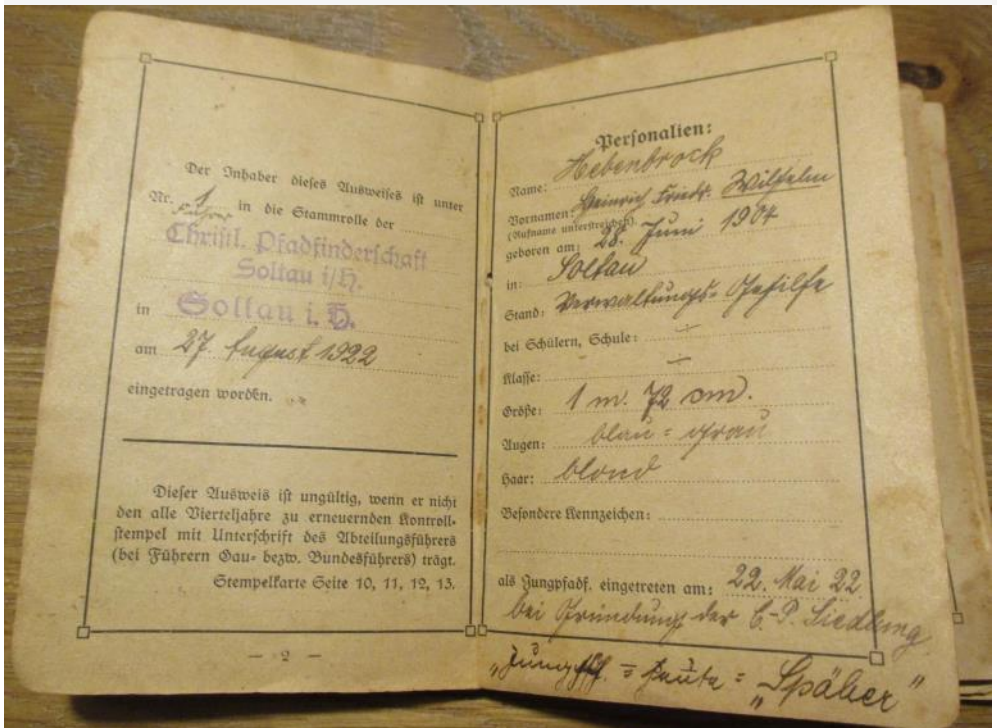 Der Inhaber dieses Ausweises ist unter
Nr. 1 in die Stammrolle der
Führer
Christl. Pfadfinderschaft
Soltau i/H.
in Soltau i. H.
am 27. August 1922
eingetragen worden.
Dieser Ausweis ist ungültig, wenn er nicht
den alle Vierteljahre zu erneuernden Kontroll-
stempel mit Unterschrift des Abteilungsführers
(bei Führern Gau- bezw. Bundesführers) trägt.
Stempelkarte Seite 10, 11, 12, 13.
— 2 —
Personalien:
Name: Hebenbrock
Vornamen: Heinrich Friedr. Wilhelm
(Rufname unterstreichen)
geboren am: 28. Juni 1904
in: Soltau
Stand: Verwaltungs-Gehilfe
bei Schülern, Schule: —
Klasse: —
Größe: 1 m. 72 cm.
Augen: blau-grau
Haar: blond
Besondere Kennzeichen:
als Jungpfadf. eingetreten am: 22. Mai 22
bei Gründung der C.-P. Siedlung
= heute = "Späher"